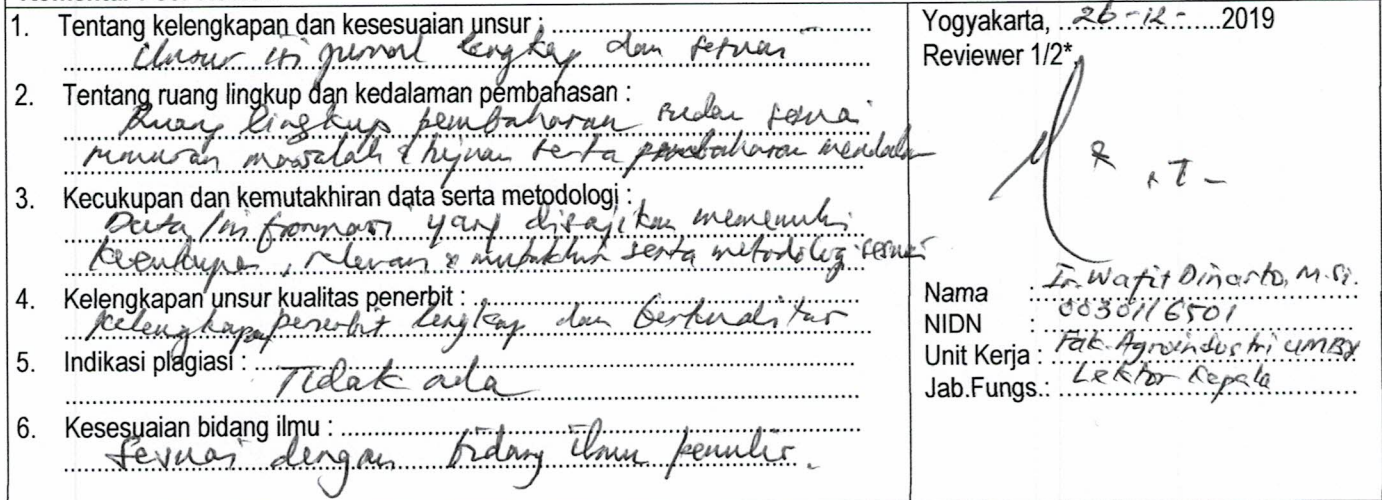 1. Tentang kelengkapan dan kesesuaian unsur :
Unsur isi jurnal lengkap dan sesuai
2. Tentang ruang lingkup dan kedalaman pembahasan :
Ruang lingkup pembahasan sudah sesuai
rumusan masalah & tujuan serta pembahasan mendalam
3. Kecukupan dan kemutakhiran data serta metodologi :
Data/informasi yang disajikan memenuhi
kecukupan, relevan & mutakhir serta metodologi sesuai
4. Kelengkapan unsur kualitas penerbit :
Kelengkapan penerbit lengkap dan berkualitas
5. Indikasi plagiasi :
Tidak ada
6. Kesesuaian bidang ilmu :
Sesuai dengan bidang ilmu penulis.
Yogyakarta, 26-12-2019
Reviewer 1/2*,
Nama : Ir. Wafit Dinarto, M.Si.
NIDN : 0030116501
Unit Kerja : Fak. Agroindustri UMBY
Jab.Fungs.: Lektor Kepala